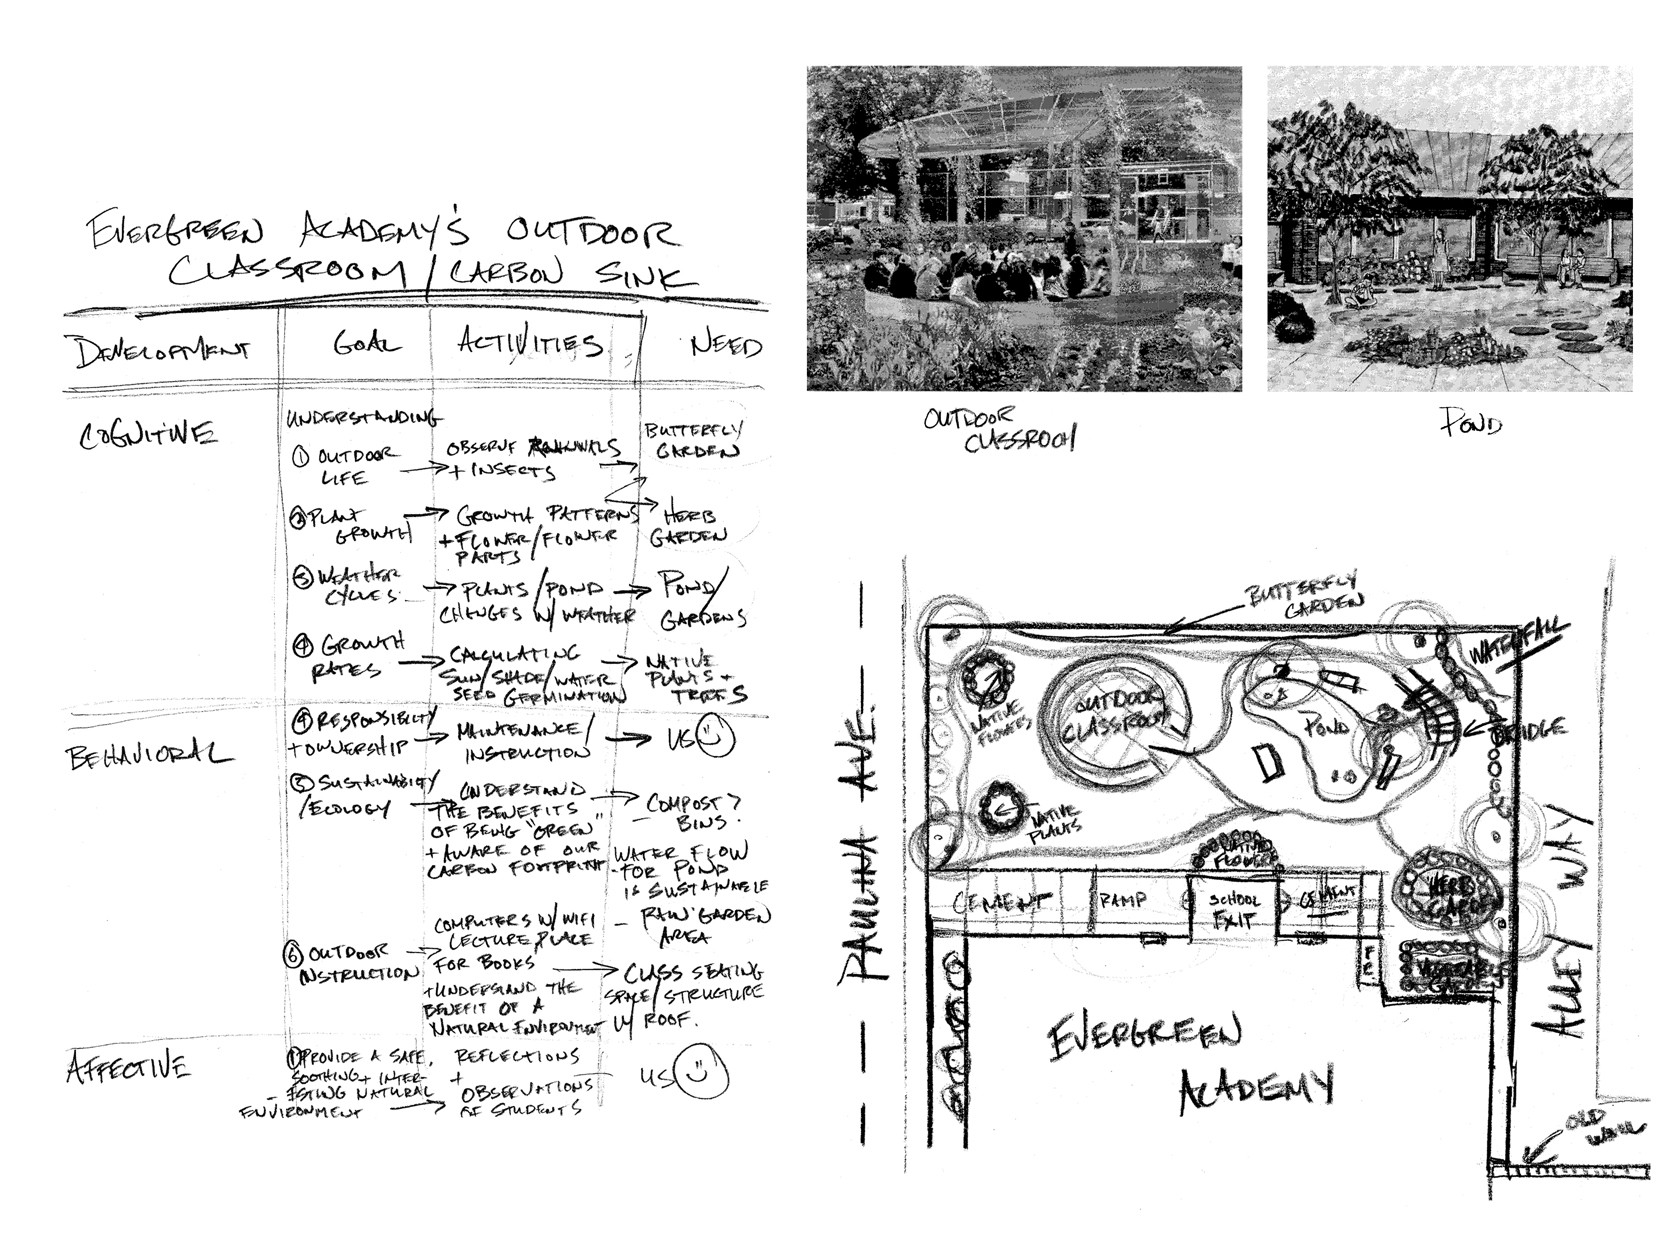 EVERGREEN ACADEMY'S OUTDOOR
CLASSROOM/CARBON SINK
DEVELOPMENT
GOAL
ACTIVITIES
NEED
COGNITIVE
UNDERSTANDING
① OUTDOOR
LIFE
OBSERVE ANIMALS
+ INSECTS
BUTTERFLY
GARDEN
② PLANT
GROWTH
GROWTH PATTERNS
+ FLOWER/FLOWER
PARTS
HERB
GARDEN
③ WEATHER
CYCLES
PLANTS/POND
CHANGES W/ WEATHER
POND/
GARDENS
④ GROWTH
RATES
CALCULATING
SUN/SHADE/WATER
SEED GERMINATION
NATIVE
PLANTS +
TREES
BEHAVIORAL
④ RESPONSIBILTY
+ OWNERSHIP
MAINTENANCE/
INSTRUCTION
US
⑤ SUSTAINABILITY
/ECOLOGY
UNDERSTAND
THE BENEFITS
OF BEING "GREEN"
+ AWARE OF OUR
CARBON FOOTPRINT
COMPOST?
BINS.
WATER FLOW
- FOR POND
IS SUSTAINABLE
- RAW GARDEN
AREA
⑥ OUTDOOR
INSTRUCTION
COMPUTERS W/ WIFI
LECTURE, PLACE
FOR BOOKS
+ UNDERSTAND THE
BENEFIT OF A
NATURAL ENVIRONMENT
CLASS SEATING
SPACE/STRUCTURE
W/ ROOF.
AFFECTIVE
① PROVIDE A SAFE,
SOOTHING + INTER-
ESTING NATURAL
ENVIRONMENT
REFLECTIONS
+
OBSERVATIONS
OF STUDENTS
US
OUTDOOR
CLASSROOM
POND
BUTTERFLY
GARDEN
WATERFALL
NATIVE
FLOWERS
OUTDOOR
CLASSROOM
POND
BRIDGE
NATIVE
PLANTS
NATIVE
FLOWERS
PAULINA AVE.
CEMENT
RAMP
SCHOOL
EXIT
CEMENT
HERB
GARDEN
VEGETABLE
GARDEN
ALLEY WAY
EVERGREEN
ACADEMY
OLD